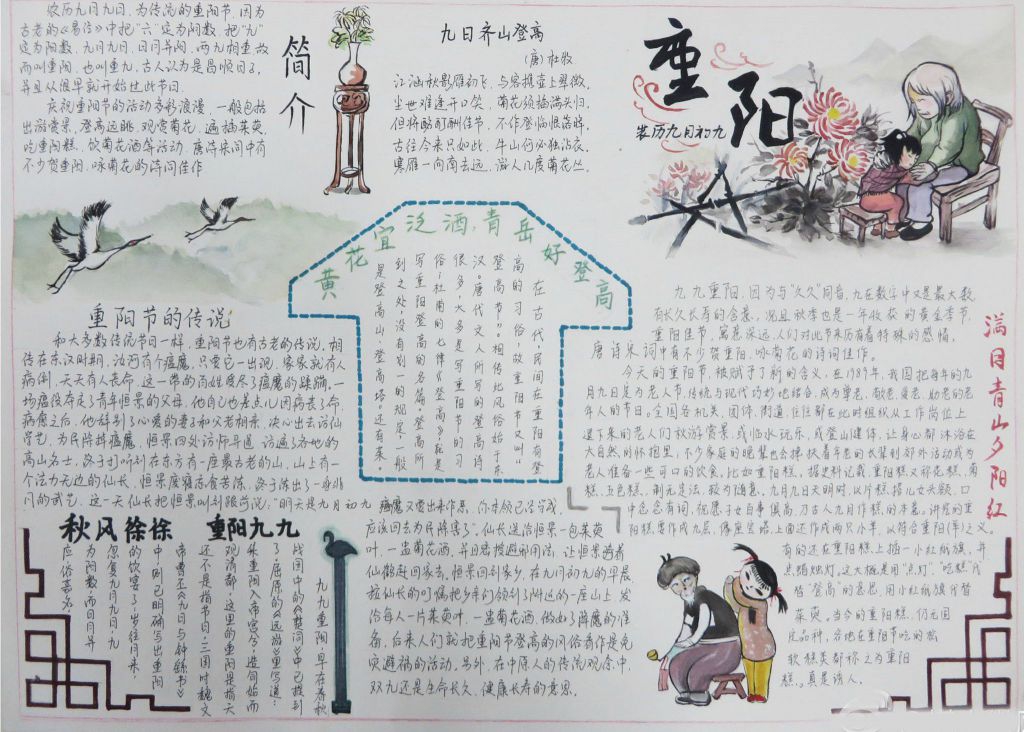 农历九月九日,为传统的重阳节。因为
古老的《易经》中把“六”定为阴数,把“九”
定为阳数,九月九日,日月并阳,两九相重,故
而叫重阳,也叫重九,古人认为是
并且从很早就开始过此节日。
庆祝重阳节的活动多彩浪漫,一般包括
出游赏景、登高远眺、观赏菊花、遍插茱萸、
吃重阳糕、饮菊花酒等活动。唐诗宋词中有
不少贺重阳,咏菊花的诗词佳作
简介
九日齐山登高
(唐)杜牧
江涵秋影雁初飞,与客携壶上翠微。
尘世难逢开口笑,菊花须插满头归。
但将酩酊酬佳节,不作登临恨落晖。
古往今来只如此,牛山何必独沾衣。
寒雁一向南去远,游人几度菊花丛。
重阳
农历九月初九
黄花宜泛酒,青岳好登高
在古代,民间在重阳有登
高的习俗,故重阳节又叫“
登高节”。相传此风俗始于东
汉。唐代文人所写的登高诗
很多,大多是写重阳节的习
俗;杜甫的七律《登高》,就是
写重阳登高的名篇。登高所
到之处,没有划一的规定,一般
是登高山、登高塔。还有菜。
重阳节的传说
和大多数传统节日一样,重阳节也有古老的传说。相
传在东汉时期,汝河有个瘟魔,只要它一出现,家家就有人
病倒,天天有人丧命,这一带的百姓受尽了瘟魔的蹂躏。一
场瘟疫夺走了青年恒景的父母,他自己也差点儿因病丧了命。
病愈之后,他辞别了心爱的妻子和父老相亲,决心出去访仙
学艺,为民除掉瘟魔。恒景四处访师寻道,访遍了各地的
高山名士,终于打听到在东方有一座最古老的山,山上有一
个法力无边的仙长,恒景废寝忘食苦练,终于练出了一身非
凡的武艺。这一天仙长把恒景叫到跟前说:“明天是九月初九,瘟魔又要出来作恶,你本领已经学成,
应该回去为民除害了”。仙长送给恒景一包茱萸
叶,一盅菊花酒,并且密授避邪用法,让恒景骑着
仙鹤赶回家去。恒景回到家乡,在九月初九的早晨,
按仙长的叮嘱把乡亲们领到了附近的一座山上,发
给每人一片茱萸叶,一盅菊花酒,做好了降魔的准
备,后来人们就把重阳节登高的风俗看作是免
灾避祸的活动。另外,在中原人的传统观念中,
双九还是生命长久、健康长寿的意思。
九九重阳,因为与“久久”同音,九在数字中又是最大数,
有长久长寿的含意,况且秋季也是一年收获的黄金季节,
重阳佳节,寓意深远,人们对此节历来有着特殊的感情,
唐诗宋词中有不少贺重阳,咏菊花的诗词佳作。
今天的重阳节,被赋予了新的含义,在1989年,我国把每年的九
月九日定为老人节,传统与现代巧妙地结合,成为尊老、敬老、爱老、助老的老
年人的节日。全国各机关、团体、街道,往往都在此时组织从工作岗位上
退下来的老人们秋游赏景,或临水玩乐,或登山健体,让身心都沐浴在
大自然的怀抱里;不少家庭的晚辈也会搀扶着年老的长辈到郊外活动或为
老人准备一些可口的饮食。比如重阳糕。据史料记载,重阳糕又称花糕、菊
糕、五色糕,制无定法,较为随意。九月九日天明时,以片糕搭儿女头额,口
中念念有词,祝愿子女百事俱高,乃古人九月作糕的本意。讲究的重
阳糕要作成九层,像座宝塔,上面还作成两只小羊,以符合重阳(羊)之义。
有的还在重阳糕上插一小红纸旗,并
点蜡烛灯。这大概是用“点灯”、“吃糕”代
替“登高”的意思,用小红纸旗代替
茱萸。当今的重阳糕,仍无固
定品种,各地在重阳节吃的松
软糕类都称之为重阳
糕。真是诱人。
满目青山夕阳红
秋风徐徐 重阳九九
九九重阳,早在春秋
战国中的《楚词》中已提到
了。屈原的《远游》里写道:
“集重阳入帝宫兮,造旬始而
观清都”。这里的重阳是指天,
还不是指节日。三国时魏文
帝曹丕《九日与钟繇书》
中,则已明确写出重阳
的饮宴了:“岁往月来,
忽复九月九日。九
为阳数,而日月并
应,俗嘉其名